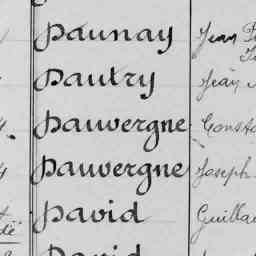 Daunay Jean
Dautry Jean
Dauvergne Consta
Dauvergne Joseph
David Guilla
David